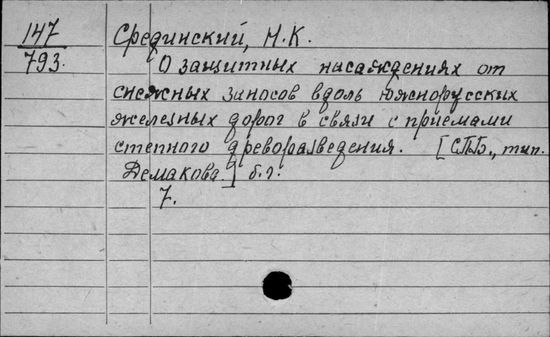 147
793.
Срединский, Н.К.
О защитных насаждениях от
снежных заносов вдоль южнорусских
железных дорог в связи с приемами
степного древоразведения. [СПБ., тип.
Демакова.] б.г.
7.